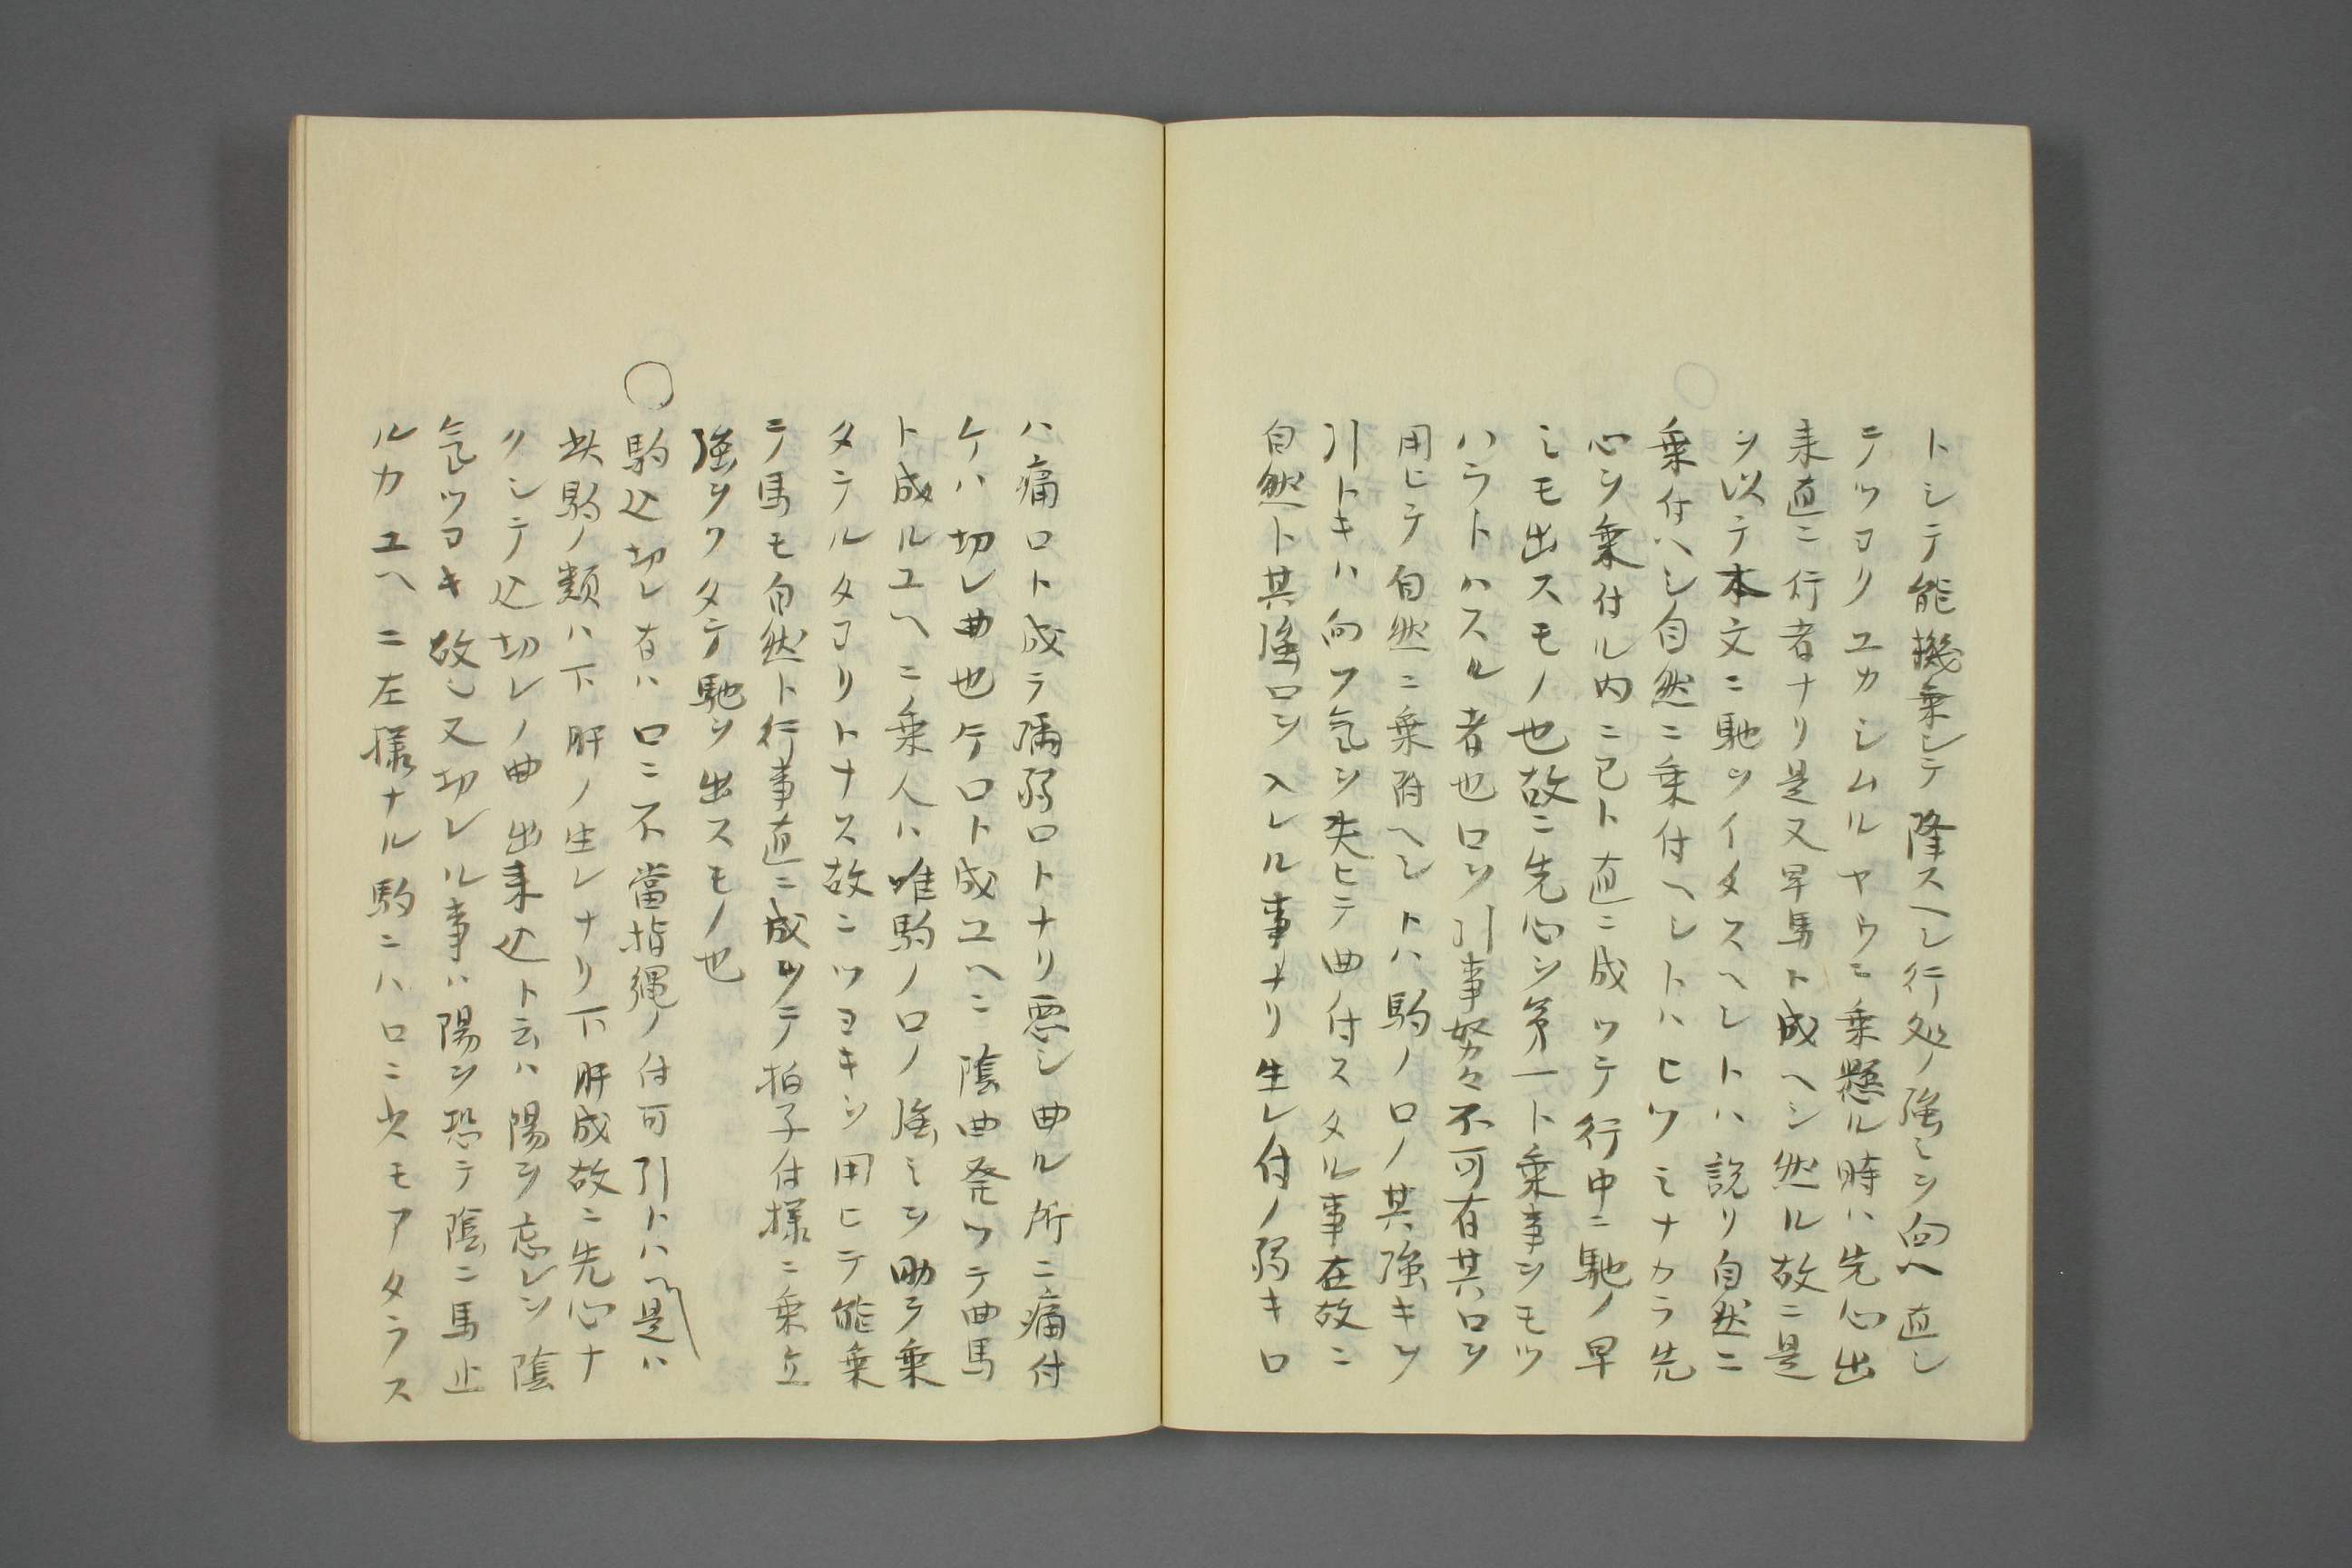 トシテ能機乗シテ隆スヘシ行処ノ強ミヲ向ヘ直シ
テツヨクユカシムルヤウニ乗懸ル時ハ先心出
来直ニ行者ナリ是又早馬ト成ヘシ然ル故ニ是
ヲ以テ本文ニ馳ヲイタスヘシトハ説リ自然ニ
乗付ヘシ自然ニ乗付ヘシトハヒツミナカラ先
心ヲ乗付ル内ニ已ト直ニ成ツテ行中ニ馳ノ早
ミモ出スモノ也故ニ先心ヲ第一ト乗事ヲモツ
ハラトハスル者也口ヲ引事努々不可有其口ヲ
用ヒテ自然ニ乗附ヘシトハ駒ノ口ノ其強キヲ
引トキハ向フ気ヲ失ヒテ曲付スタル事在故ニ
自然ト其強口ヲ入レル事ナリ生レ付ノ弱キ口
ハ痛口ト成テ猶弱口トナリ悪シ曲ル所ニ痛付
ケハ切レ曲也ケ口ト成ユヘニ陰曲発ツテ曲馬
ト成ルユヘニ乗人ハ唯駒ノ口ノ強ミヲ助テ乗
タテルタヨリトナス故ニツヨキヲ用ヒテ能乗
テ馬モ自然ト行事直ニ成ツテ拍子付様ニ乗立
強ヲクタテ馳ヲ出スモノ也
○駒込切レ有ハ口ニ不當指縄ノ付可引トハ是ハ
此駒ノ類ハ下肝ノ生レナリ下肝成故ニ先心ナ
クシテ込切レノ曲出来込ト云ハ陽ヲ忘レシ陰
気ツヨキ故ニ又切レル事ハ陽ヲ恐テ陰ニ馬止
ルカユヘニ左様ナル駒ニハ口ニ少モアタラス